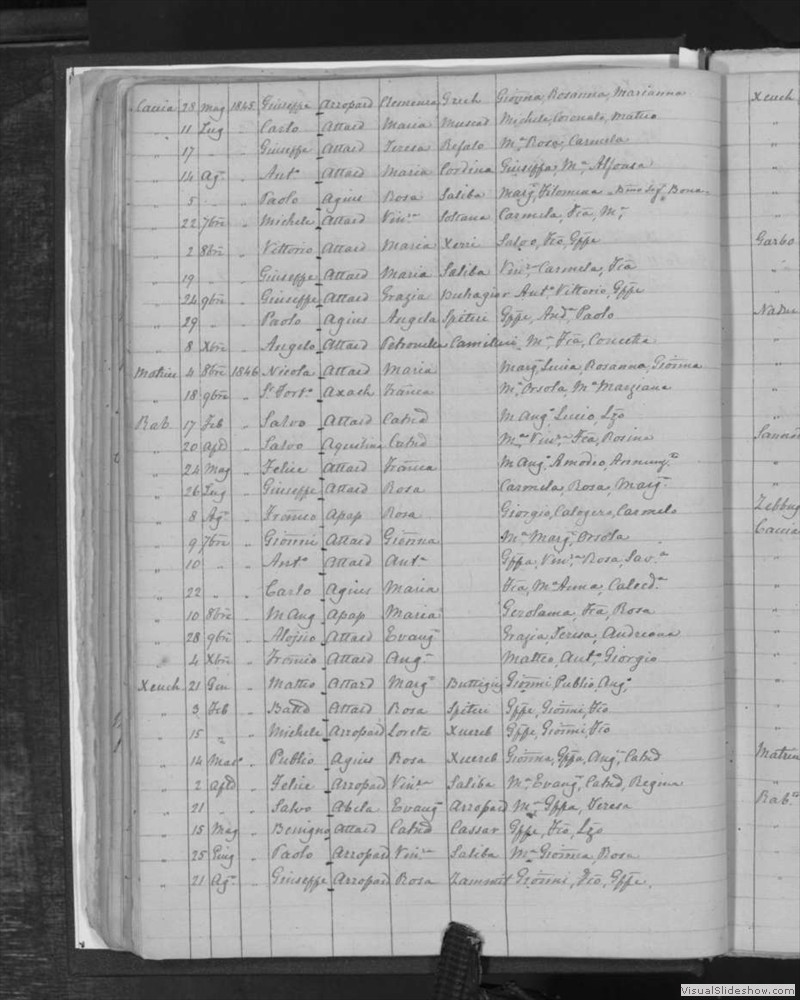 Caccia 25 Mag 1845 Giuseppe Arropard Clemenza Grech Gioñna, Rosanna, Marianna
" 11 Lug " Carlo Attard Maria Muscad Michele, Coronato, Matteo
" 17 " " Giuseppe Attard Teresa Refalo Mª Rosa, Carmela
" 14 Agº " Antº Attard Maria Cordina Giuseppa, Mª, Alfonsa
" 5 " " Paolo Agius Rosa Saliba Margª, Filomena
" 22 7bre " Michele Attard Vinza Soltana Carmela, Fca, Mª
" 2 8bre " Vittorio Attard Maria Xerri Salvo, Fco, Gppe
" 19 " " Giuseppe Attard Maria Saliba Vinza Carmela, Fca
" 24 9bre " Giuseppe Attard Grazia Buhagiar Antº Vittorio, Gppe
" 29 " " Paolo Agius Angela Spiteri Gppe, Andª Paolo
" 8 Xbre " Angelo Attard Petronella Camilleri Mª Fca, Concetta
Matrice 4 8bre 1846 Nicola Attard Maria Margª Lucia, Rosanna, Gioñna
" 18 9bre " Axach Franca Mª, Orsola, Mª Marziana
Rab. 17 Feb " Salvo Attard Catnd M Angº Lucio, Lzo
" 20 Aple " Salvo Agustina Catnd Mª Vinza Fca, Rosina
" 24 Mag " Felice Attard Franca M Angº Amodeo, Annunzta
" 26 Lug " Giuseppe Attard Rosa Carmela, Rosa, Margª
" 8 Agº " Franco Apap Rosa Giorgio, Calogero, Carmelo
" 9 7bre " Gioñni Attard Gioñna Mª Margª Orsola
" 10 " " Antº Attard Antª Gppa, Vinza Rosa, Savª
" 22 " " Carlo Agius Maria Fca, Mª Anna, Calcedª
" 10 8bre " M Ang Apap Maria Gerolama, Fca, Rosa
" 28 9bre " Alojsio Attard Evangª Grazia Teresa, Andreana
" 4 Xbre " Franco Attard Angª Matteo, Antº Giorgio
Xeuch 21 Gen " Matteo Attard Margª Buttigieg Gioñni Publio, Angº
" 3 Feb " Battd Attard Rosa Spiteri Gppe, Gioñni, Fco
" 15 " " Michele Arropard Loreta Xuereb Gppe, Gioñni, Fco
" 14 Mar " Publio Agius Rosa Xuereb Gioñna, Gppa, Angª Catnd
" 2 Aple " Felice Arropard Vinza Saliba Mª Evangª Catnd, Regina
" 21 " " Salvo Abela Evangª Arropard Mª Gppa, Teresa
" 15 Mag " Benigno Attard Catnd Cassar Gppe, Fco, Lzo
" 25 Giug " Paolo Arropard Vinza Saliba Mª Gioñna, Rosa
" 21 Agº " Giuseppe Arropard Rosa Zammit Gioñni, Fco, Gppe
Xeuch
Garbo
Nadur
Sannat
Zebbug
Caccia
Matrice
Rab.
VisualSlideshow.com